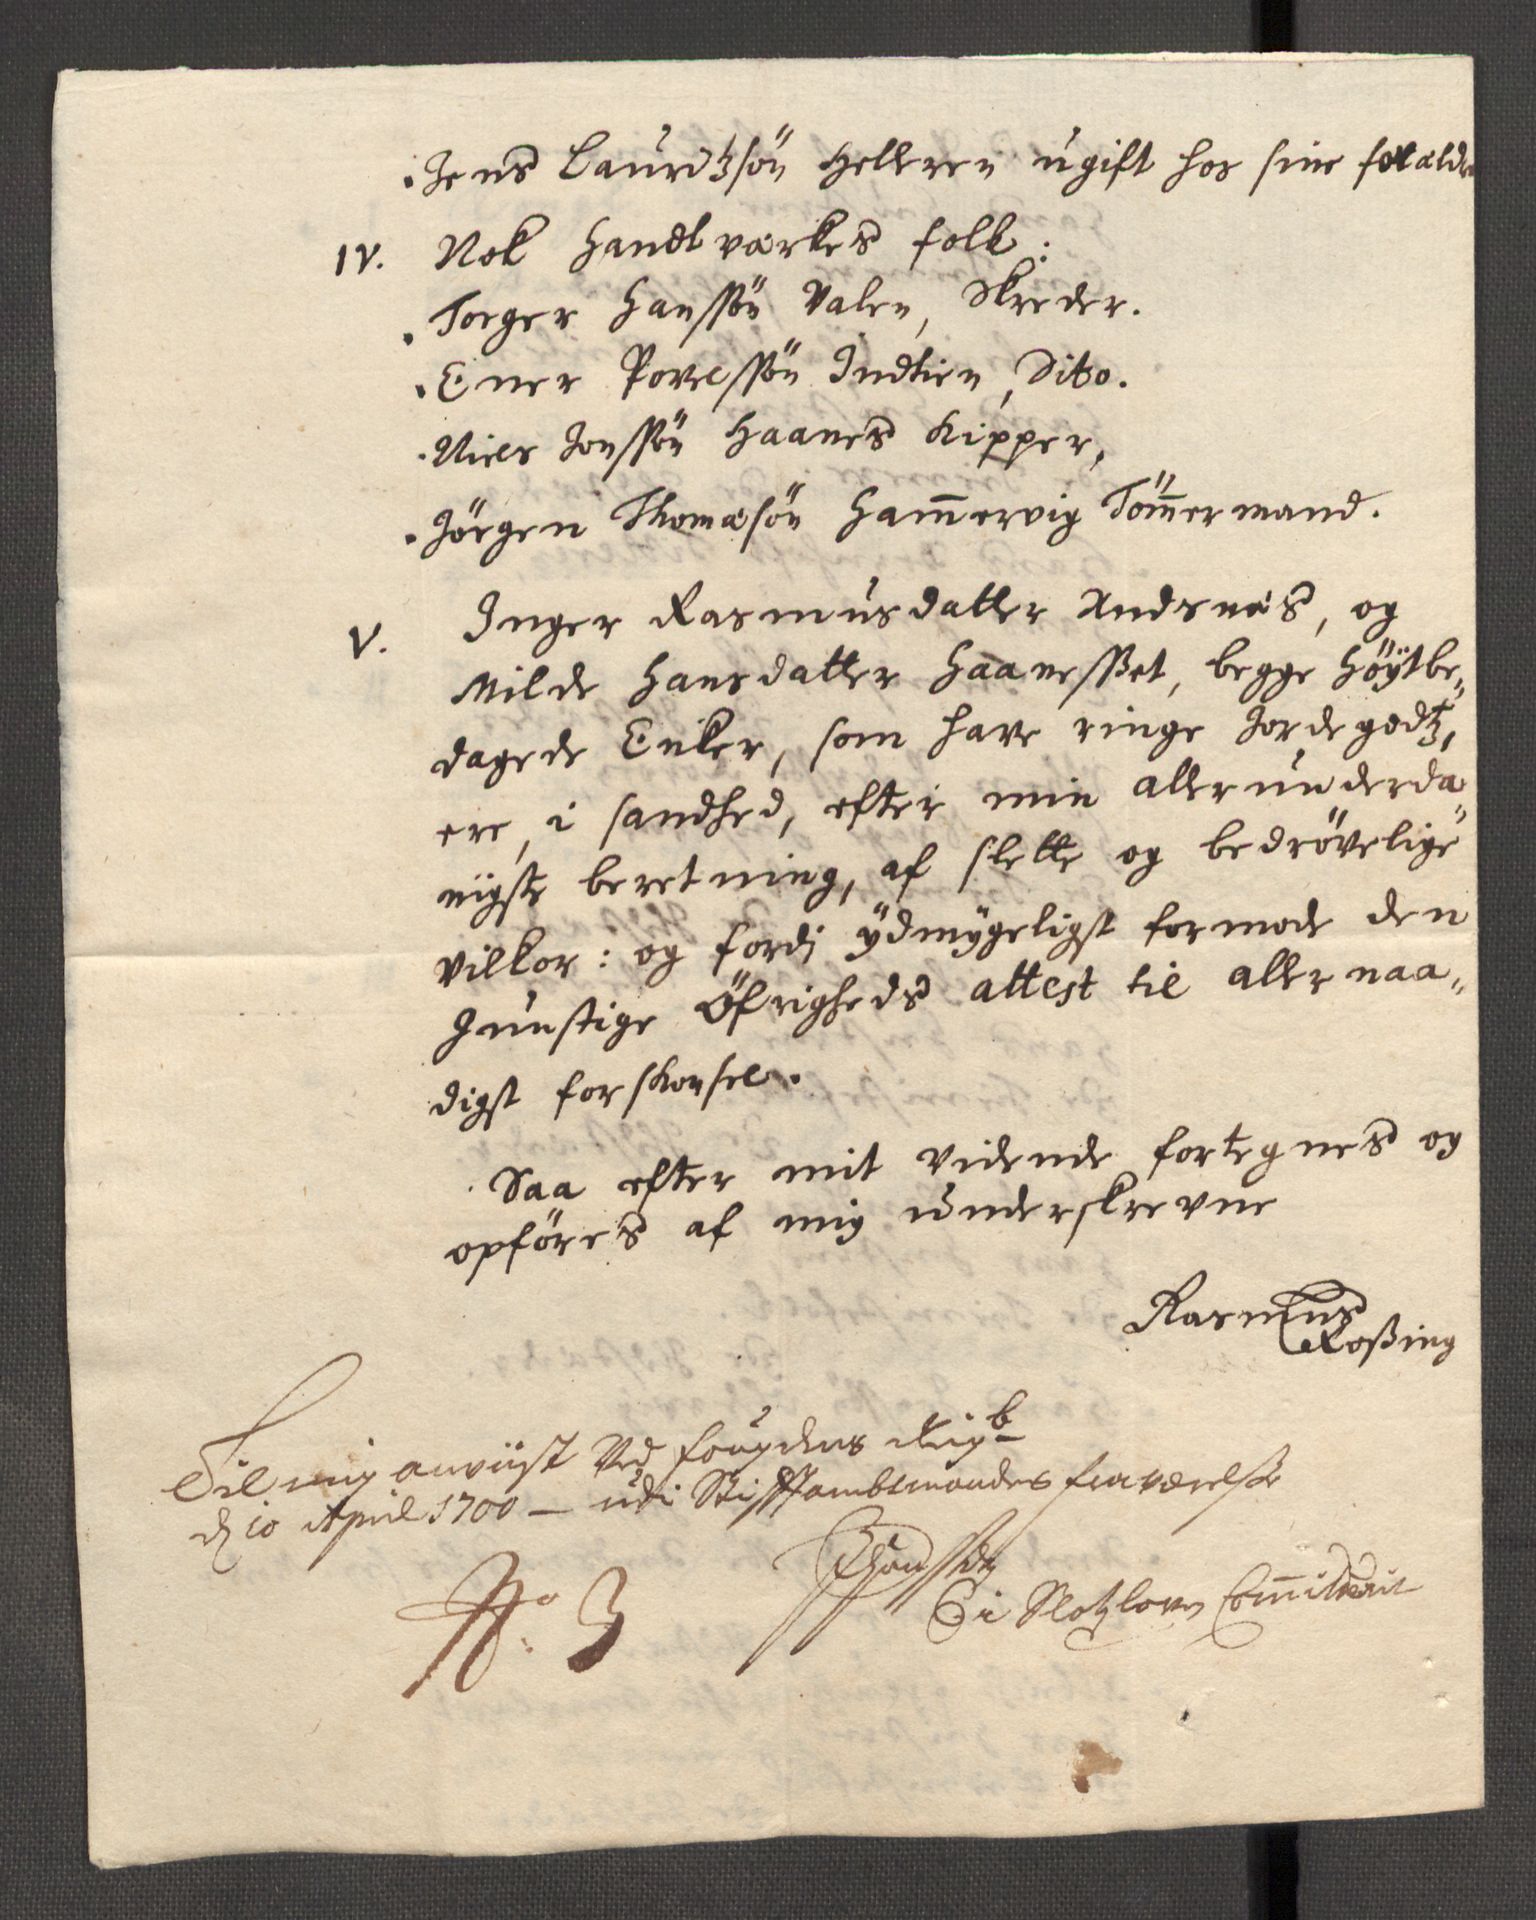 Jens Lauridtzsön Helleren ugift hos sine forældre
IV. Nok handtværkes folk:
Torger Hanssön Valen, Skreder.
Ener Povelssön Indtien, Dito.
Niels Jonssön Haanes Kipper,
Jörgen Thomæsön Ham̄ervig Töm̄ermand.
V. Inger Rasmusdatter Andsnæs, og
Milde Hansdatter Haanesset, begge höÿtbe„
dagede Enker, som have ringe Jordegodtz,
ere, i sandhed, efter min allerunderda„
nigste beretning, af slette og bedrövelige
vilkor: og fordj ÿdmygeligst formode den
gunstige Öfrigheds attest til allernaa„
digst forskonsel.
Saa efter mit vidende fortegnes og
opföres af mig underskrevne
Rasmus
Roßing
Til mig anviist Ved fougdens
d 10 April 1700 – udi Stifftambtmandes fraværelsse
i Slotzloven Com̄itterit
No. 3